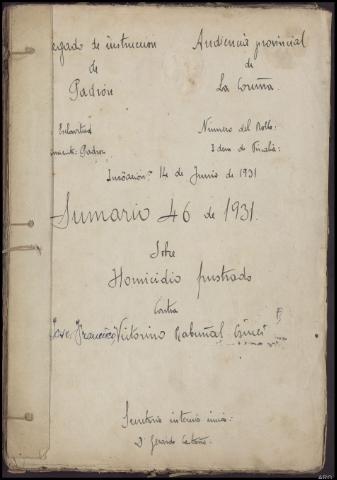 gado de instrucción
de
Padrón
Audiencia provincial
de
La Coruña.
Número del Rollo:
Idem de Fiscalía:
Padrón
14 de Junio de 1931
Sumario 46 de 1931.
Sobre
Homicidio frustrado
Contra
Francisco Victorino Rabuñal
Secretario interino
D. Gerardo